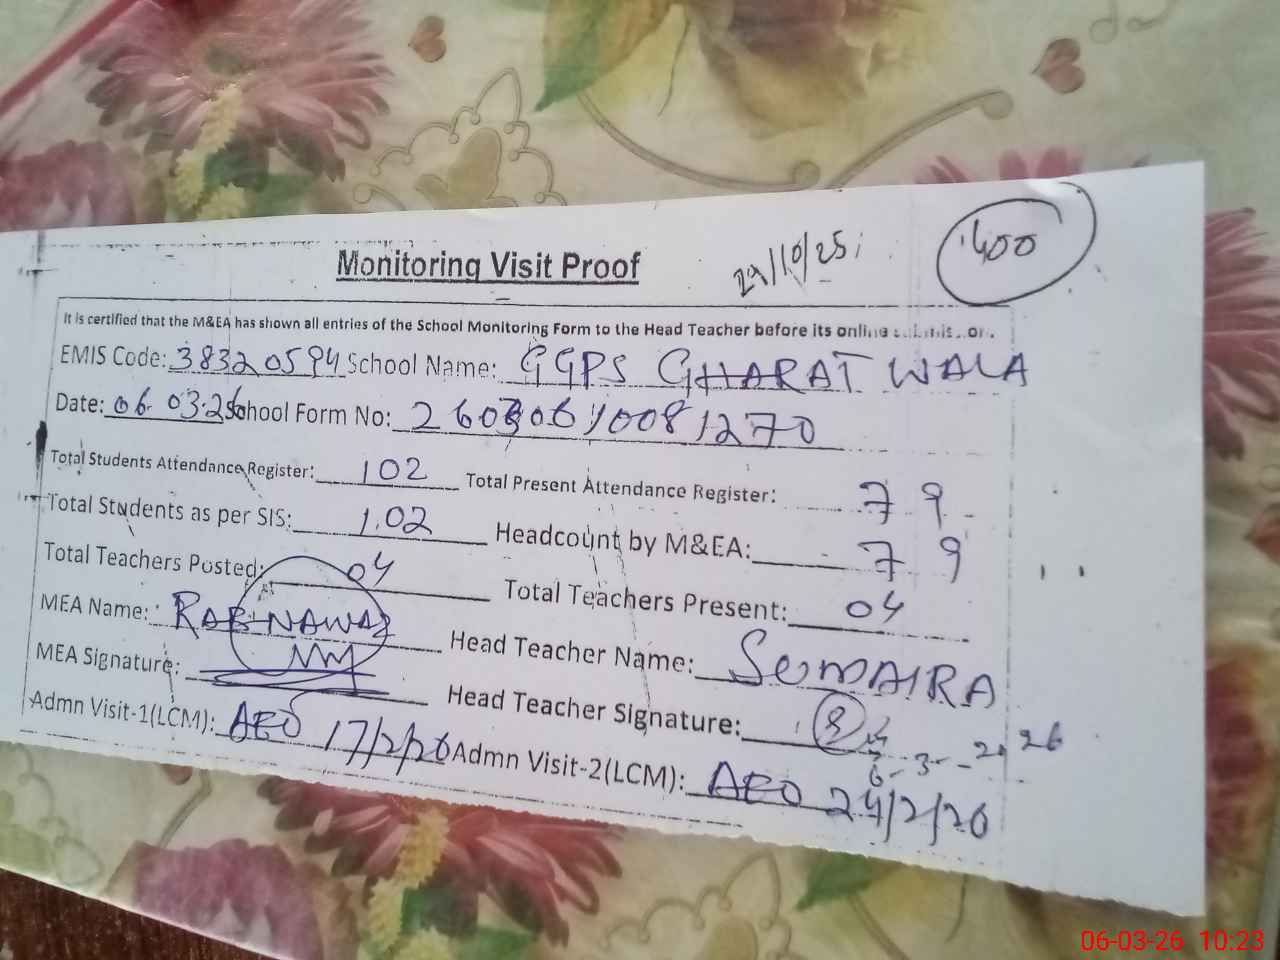 400
29/10/25
Monitoring Visit Proof
It is certified that the M&EA has shown all entries of the School Monitoring Form to the Head Teacher before its online
EMIS Code: 38320594 School Name: GGPS GHARAT WALA
Date: 06.03.26 School Form No: 2603061008 1270
Total Students Attendance Register: 102 Total Present Attendance Register: 79
Total Students as per SIS: 102 Headcount by M&EA: 79
Total Teachers Posted: 04 Total Teachers Present: 04
MEA Name: RAB NAWAZ Head Teacher Name: SUMAIRA
MEA Signature: Head Teacher Signature:
6-3-2026
Admn Visit-1(LCM): AEO 17/2/26 Admn Visit-2(LCM): AEO 24/2/26
06-03-26 10:23